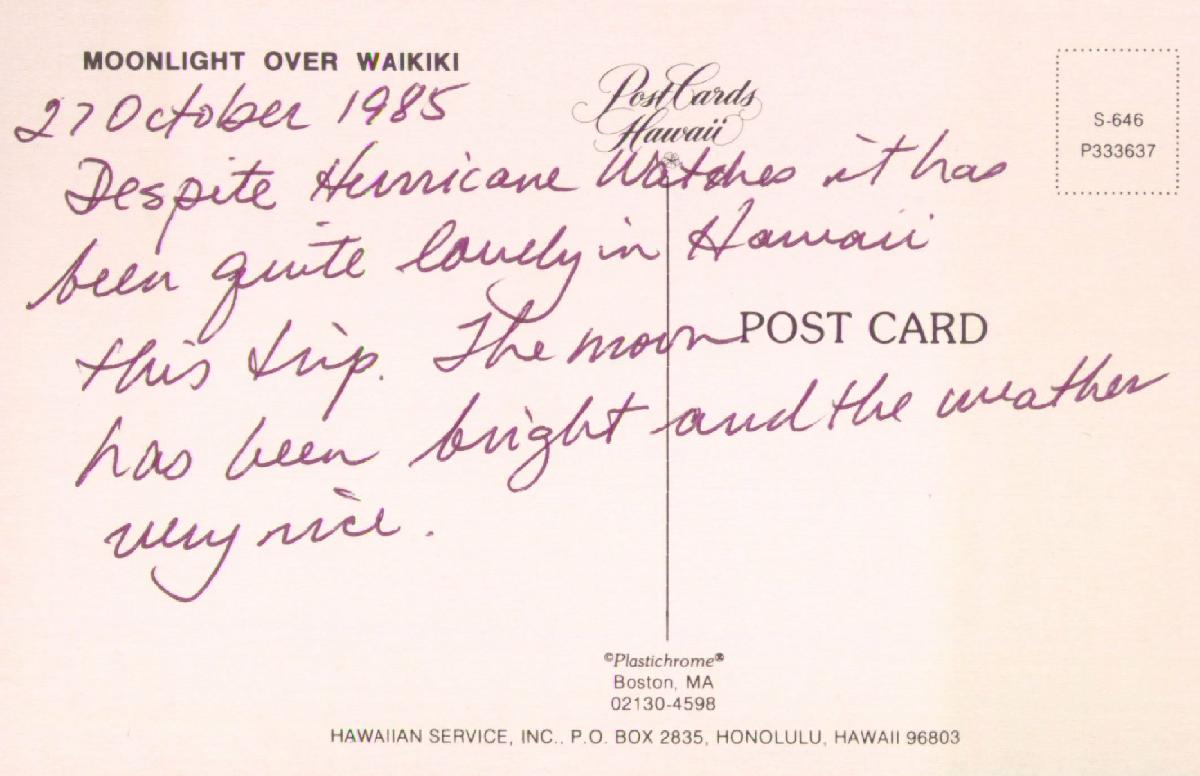 MOONLIGHT OVER WAIKIKI
27 October 1985
PostCards
Hawaii
S-646
P333637
Despite Hurricane Watches it has
been quite lovely in Hawaii
this trip. The moon
POST CARD
has been bright and the weather
very nice.
©Plastichrome®
Boston, MA
02130-4598
HAWAIIAN SERVICE, INC., P.O. BOX 2835, HONOLULU, HAWAII 96803